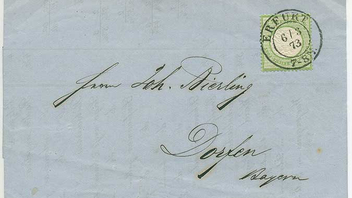 ERFURT
6/3
73
7-8N
Herrn Joh. Bierling
Dorfen
Bayern